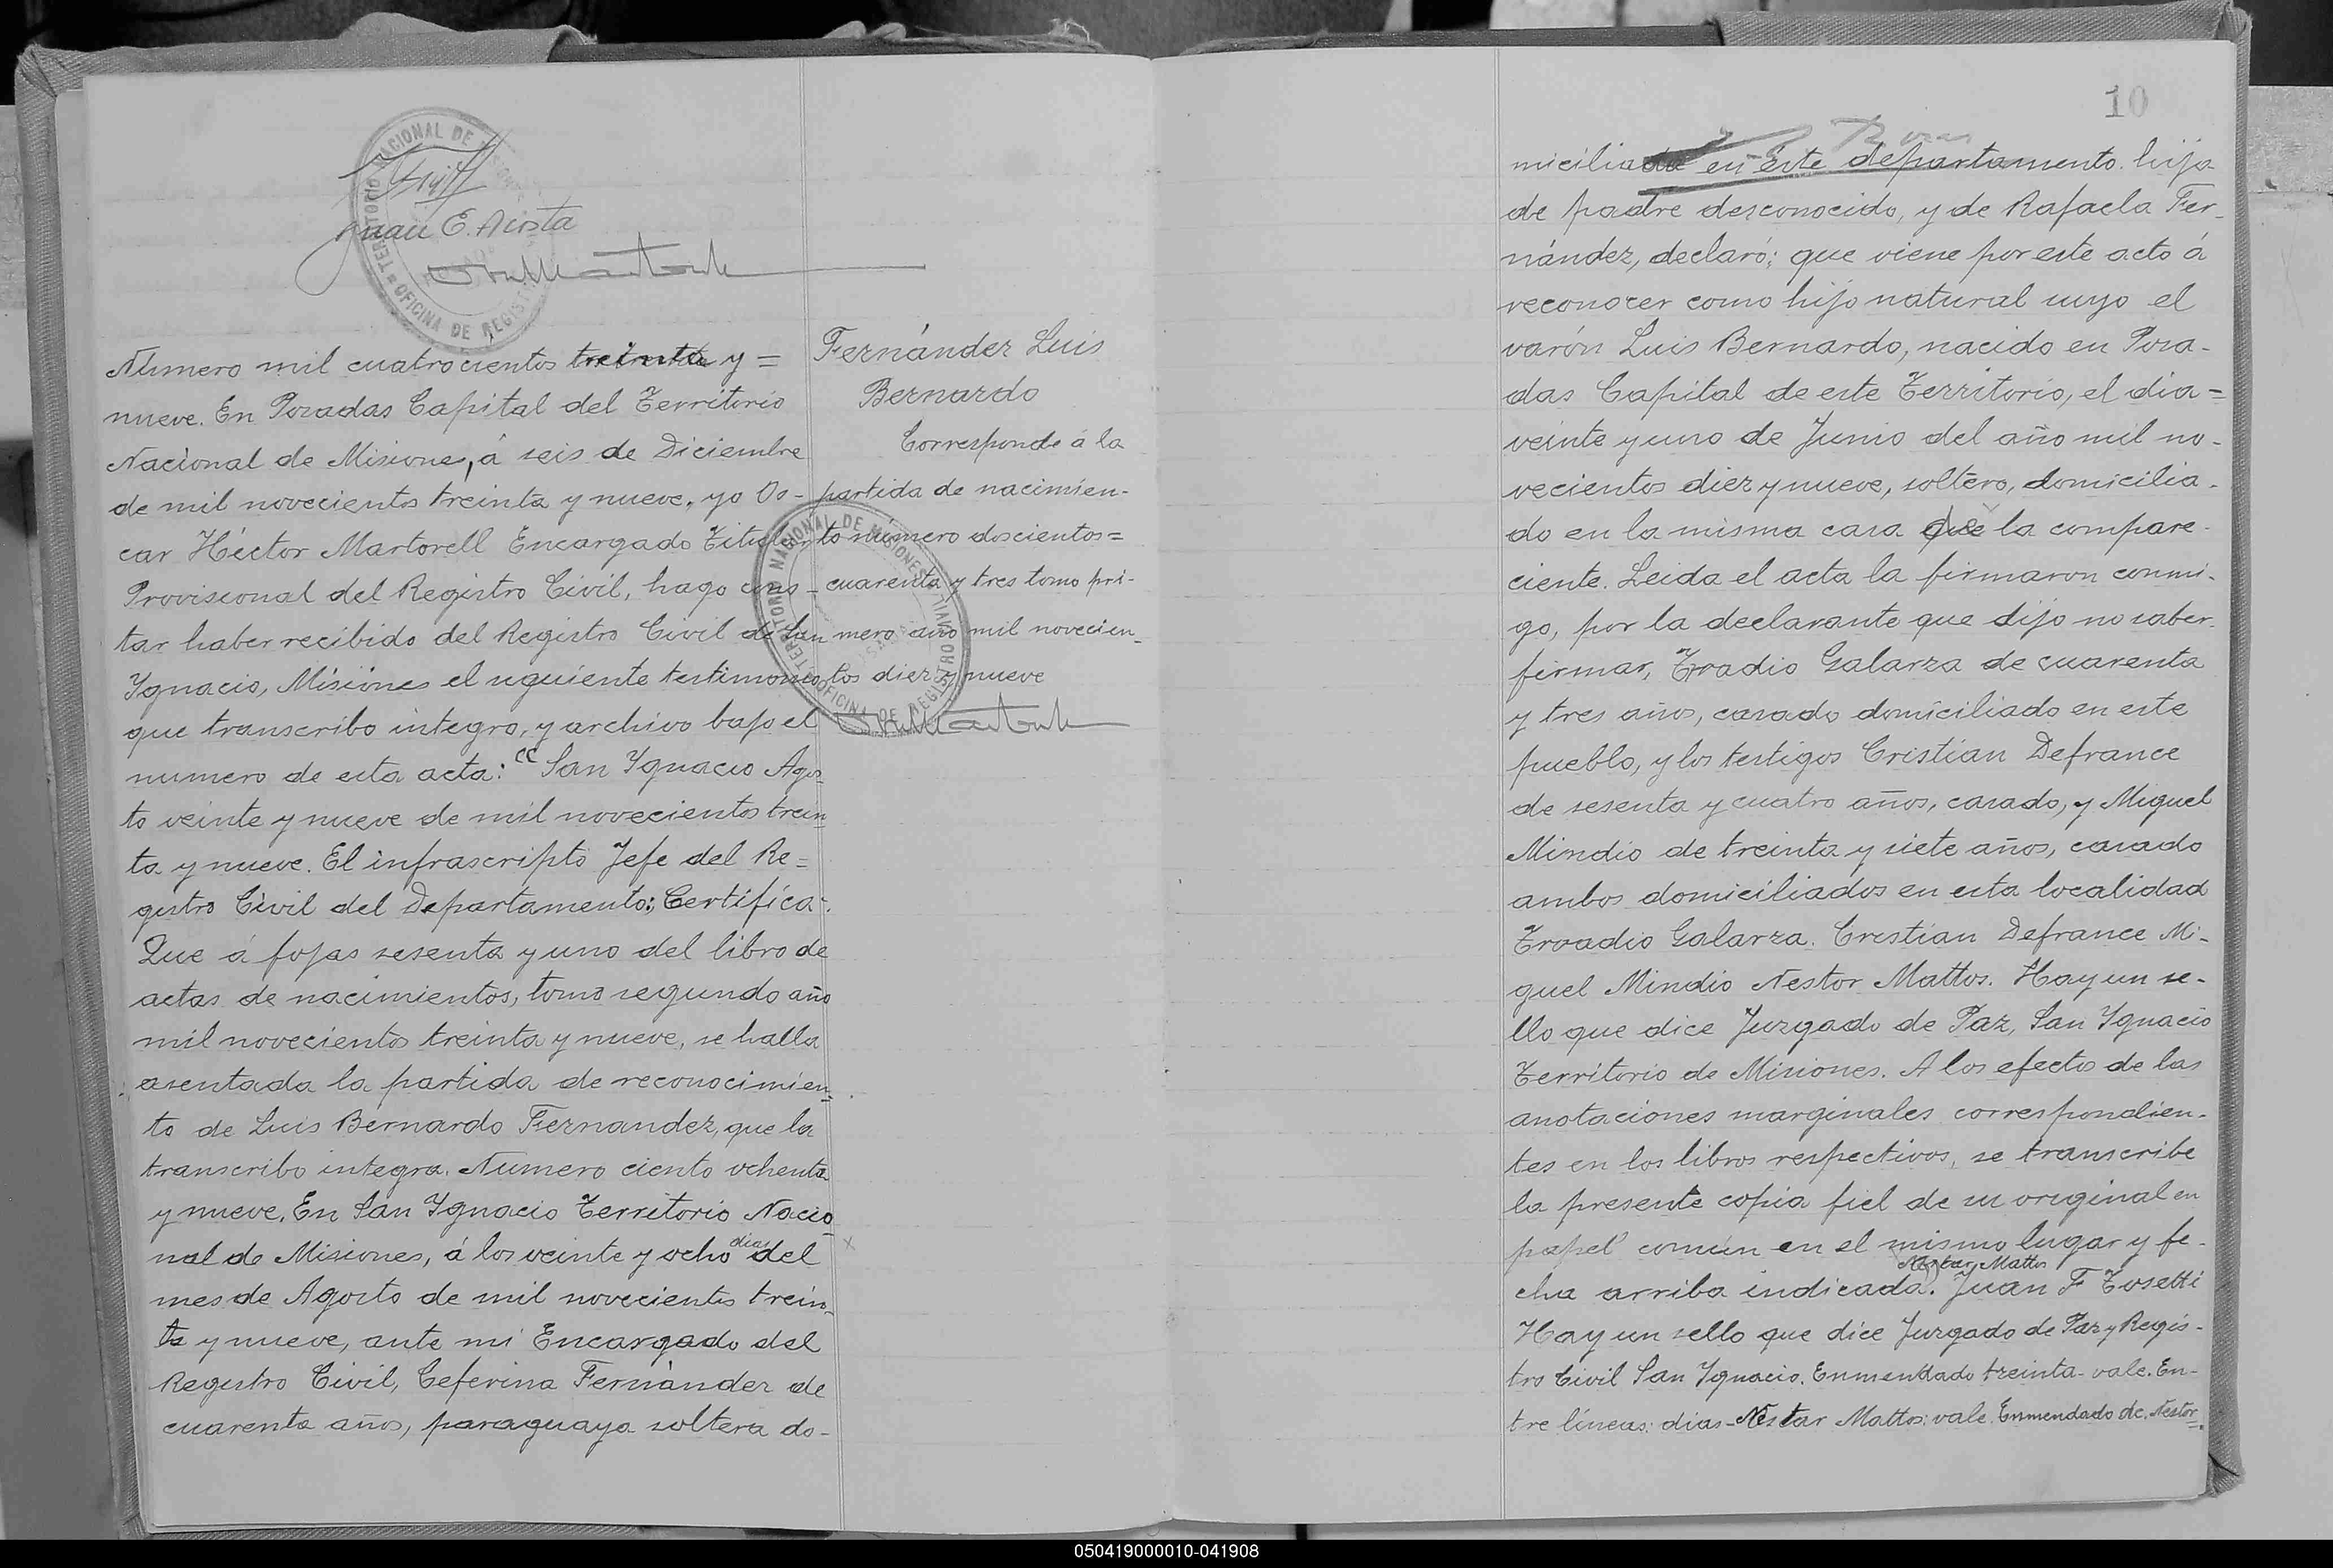 Juan E. Acosta
TERRITORIO NACIONAL DE
OFICINA DE REGIST
Número mil cuatrocientos treinta y =
nueve. En Posadas Capital del Territorio
Nacional de Misione, á seis de Diciembre
de mil novecientos treinta y nueve, yo Os-
car Héctor Martorell Encargado Titular
Provisional del Registro Civil, hago cons-
tar haber recibido del Registro Civil de San
Ygnacio, Misiones el siguiente testimonio
que transcribo integro, y archivo bajo el
numero de esta acta: "San Ygnacio Agos-
to veinte y nueve de mil novecientos trein
ta y nueve. El infrascripto Jefe del Re=
gistro Civil del Departamento: Certifica:
Que á fojas sesenta y uno del libro de
actas de nacimientos, tomo segundo año
mil novecientos treinta y nueve, se halla
asentada la partida de reconocimien
to de Luis Bernardo Fernandez, que la
transcribo integra. Numero ciento ochenta
y nueve. En San Ygnacio Territorio Nacio
nal de Misiones, á los veinte y ocho dias del
mes de Agosto de mil novecientos trein
ta y nueve, ante mi Encargado del
Registro Civil, Ceferina Fernández de
cuarenta años, paraguaya soltera do-
Fernández Luis
Bernardo
Corresponde á la
partida de nacimien-
to número doscientos=
cuarenta y tres tomo pri-
mero año mil novecien-
tos diez y nueve
TERRITORIO NACIONAL DE MISIONES
OFICINA DE REGISTRO CIVIL
10
miciliada en este departamento. hija
de padre desconocido, y de Rafaela Fer-
nández, declaró; que viene por este acto á
reconocer como hijo natural suyo el
varón Luis Bernardo, nacido en Posa-
das Capital de este Territorio, el dia=
veinte y uno de Junio del año mil no-
vecientos diez y nueve, soltero, domicilia-
do en la misma casa que la compare-
ciente. Leida el acta la firmaron conmi-
go, por la declarante que dijo no saber
firmar, Troadio Galarza de cuarenta
y tres años, casado domiciliado en este
pueblo, y los testigos Cristian Defrance
de sesenta y cuatro años, casado, y Miguel
Mindio de treinta y siete años, casado
ambos domiciliados en esta localidad
Troadio Galarza. Cristian Defrance Mi-
guel Mindio Nestor Mattos. Hay un se-
llo que dice Juzgado de Paz, San Ygnacio
Territorio de Misiones. A los efectos de las
anotaciones marginales correspondien-
tes en los libros respectivos, se transcribe
la presente copia fiel de su original en
papel común en el mismo lugar y fe-
Nestor Mattos
cha arriba indicada". Juan F Tosetti
Hay un sello que dice Juzgado de Paz y Regis-
tro Civil San Ygnacio. Enmendado treinta-vale. En-
tre líneas: dias-Nestor Mattos: vale. Enmendado de, Nestor
050419000010-041908